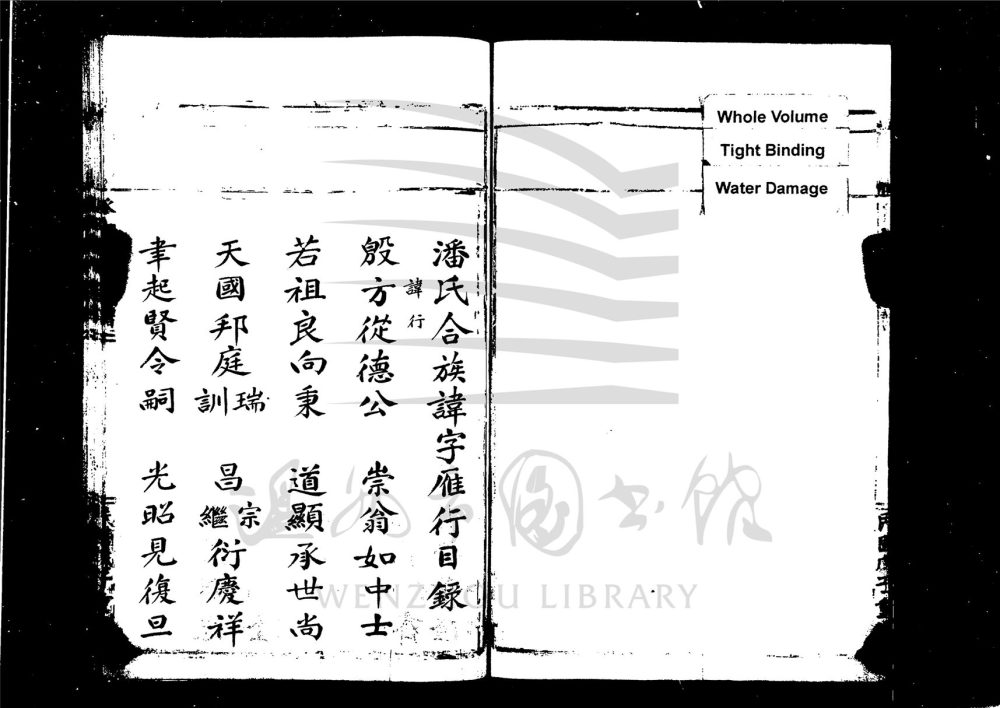 Whole Volume
Tight Binding
Water Damage
潘氏合族諱字雁行目錄
諱行
殷方從德公 崇翁如中士
若祖良向秉 道顯承世尚
天國邦庭瑞訓 昌宗繼衍慶祥
聿起賢令嗣 光昭見復旦
溫州圖書館
WENZHOU LIBRARY